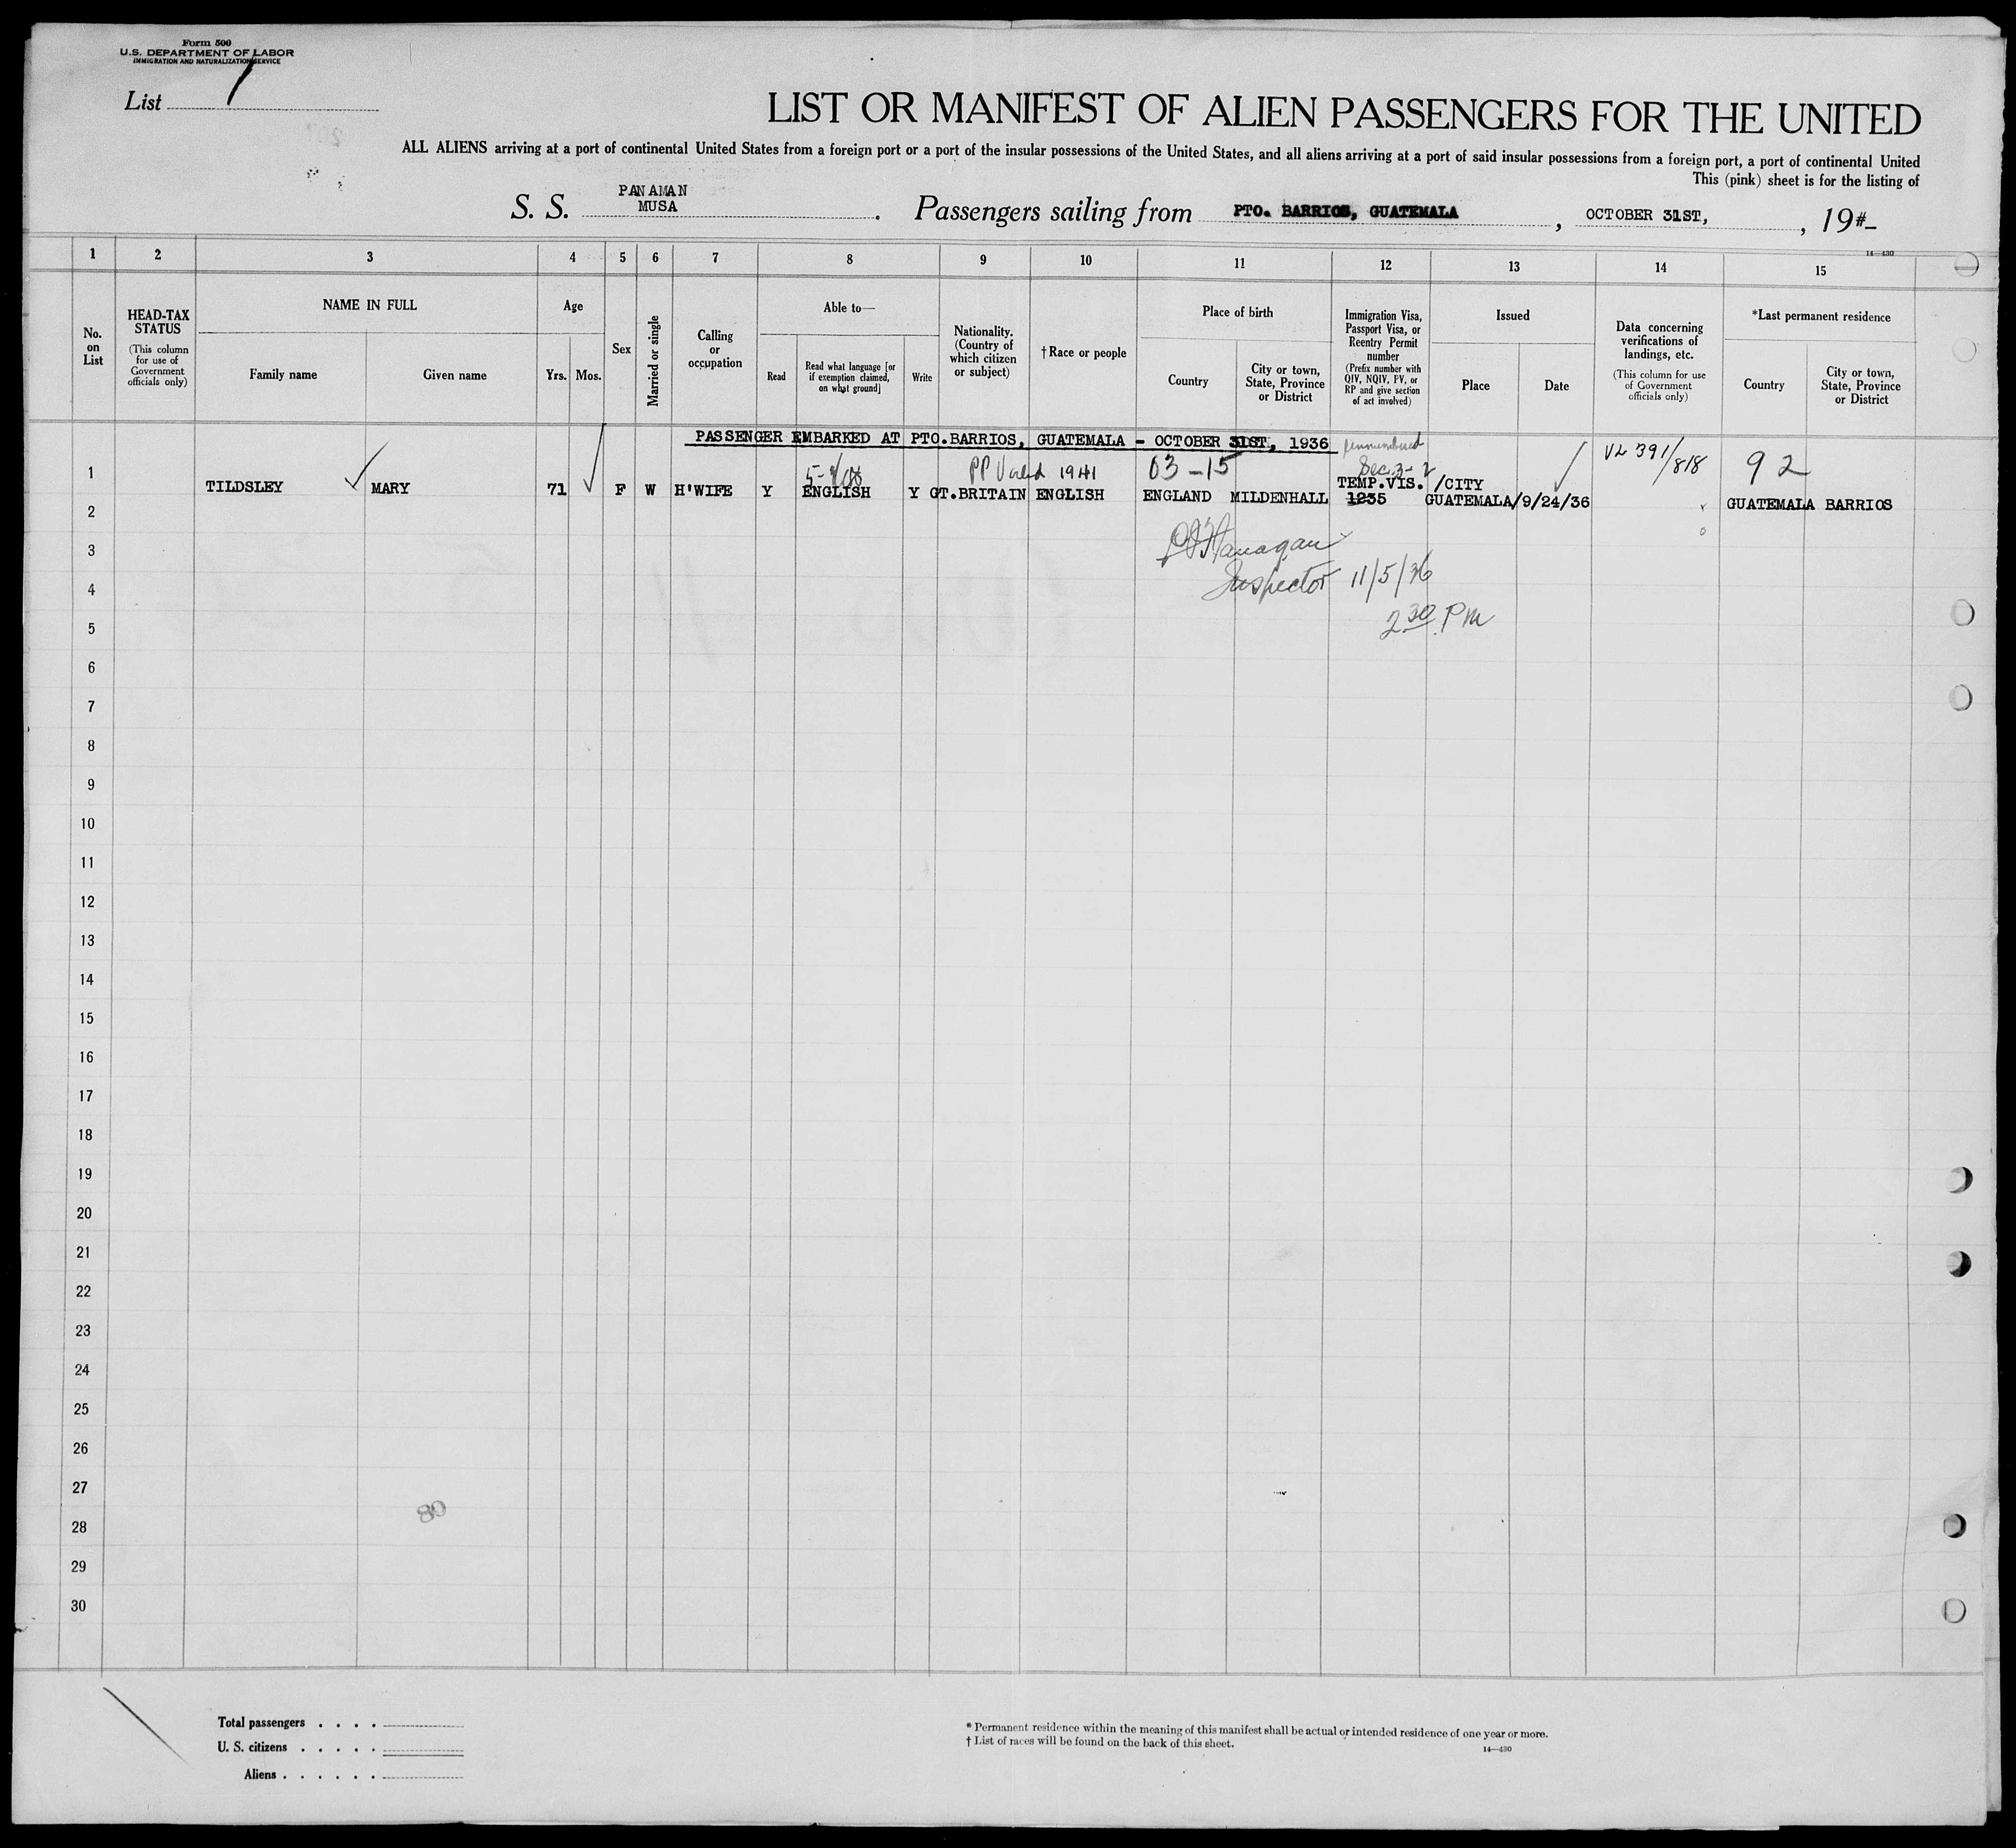 Form 500
U.S. DEPARTMENT OF LABOR
IMMIGRATION AND NATURALIZATION SERVICE
List 1
LIST OR MANIFEST OF ALIEN PASSENGERS FOR THE UNITED
ALL ALIENS arriving at a port of continental United States from a foreign port or a port of the insular possessions of the United States, and all aliens arriving at a port of said insular possessions from a foreign port, a port of continental United
This (pink) sheet is for the listing of
PANAMAN
S. S. MUSA. Passengers sailing from PTO. BARRIOS, GUATEMALA, OCTOBER 31ST, , 19#-
14—430
1 2 3 4 5 6 7 8 9 10 11 12 13 14 15
No. on List
HEAD-TAX STATUS
(This column for use of Government officials only)
NAME IN FULL
Family name
Given name
Age
Yrs. Mos.
Sex
Married or single
Calling or occupation
Able to—
Read
Read what language [or if exemption claimed, on what ground]
Write
Nationality. (Country of which citizen or subject)
†Race or people
Place of birth
Country
City or town, State, Province or District
Immigration Visa, Passport Visa, or Reentry Permit number
(Prefix number with QIV, NQIV, PV, or RP and give section of act involved)
Issued
Place
Date
Data concerning verifications of landings, etc.
(This column for use of Government officials only)
*Last permanent residence
Country
City or town, State, Province or District
PASSENGER EMBARKED AT PTO.BARRIOS, GUATEMALA - OCTOBER 31ST, 1936
PP Valid 1941 03-15 Sec. 3-2 VL 391/818 92
1 TILDSLEY MARY 71 F W H'WIFE Y ENGLISH Y GT.BRITAIN ENGLISH ENGLAND MILDENHALL TEMP.VIS. /CITY
2 1235 GUATEMALA/9/24/36 GUATEMALA BARRIOS
3
4 Inspector 11/5/36
5 2 30 PM
6
7
8
9
10
11
12
13
14
15
16
17
18
19
20
21
22
23
24
25
26
27
80
28
29
30
Total passengers . . . .
U. S. citizens . . . . .
Aliens . . . . . .
* Permanent residence within the meaning of this manifest shall be actual or intended residence of one year or more.
† List of races will be found on the back of this sheet.
14—430